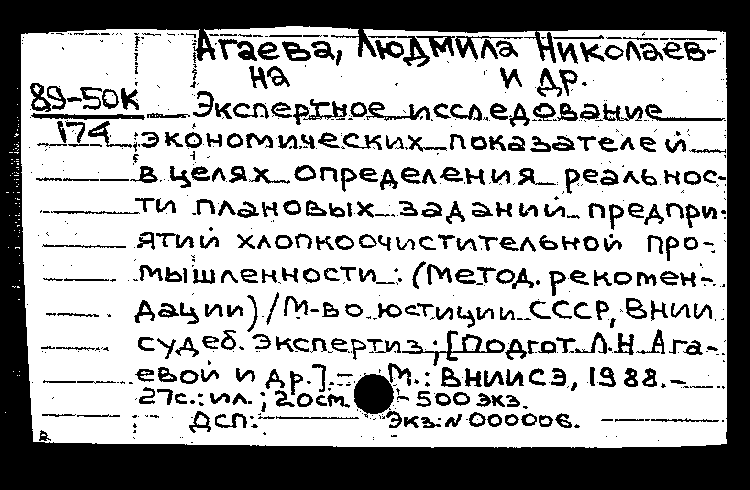 Агаева, Людмила Николаев-
на и др.
89-50К
174
Экспертное исследование
экономических показателей
в целях определения реальнос-
ти плановых заданий предпри-
ятий хлопкоочистительной про-
мышленности : (Метод. рекомен-
дации) / М-во юстиции СССР, ВНИИ
судеб. экспертиз ; [Подгот. Л.Н. Ага-
евой и др.]. - М. : ВНИИСЭ, 1988. -
27с. : ил. ; 20см. - 500 экз.
ДСП. Экз. N 000006.